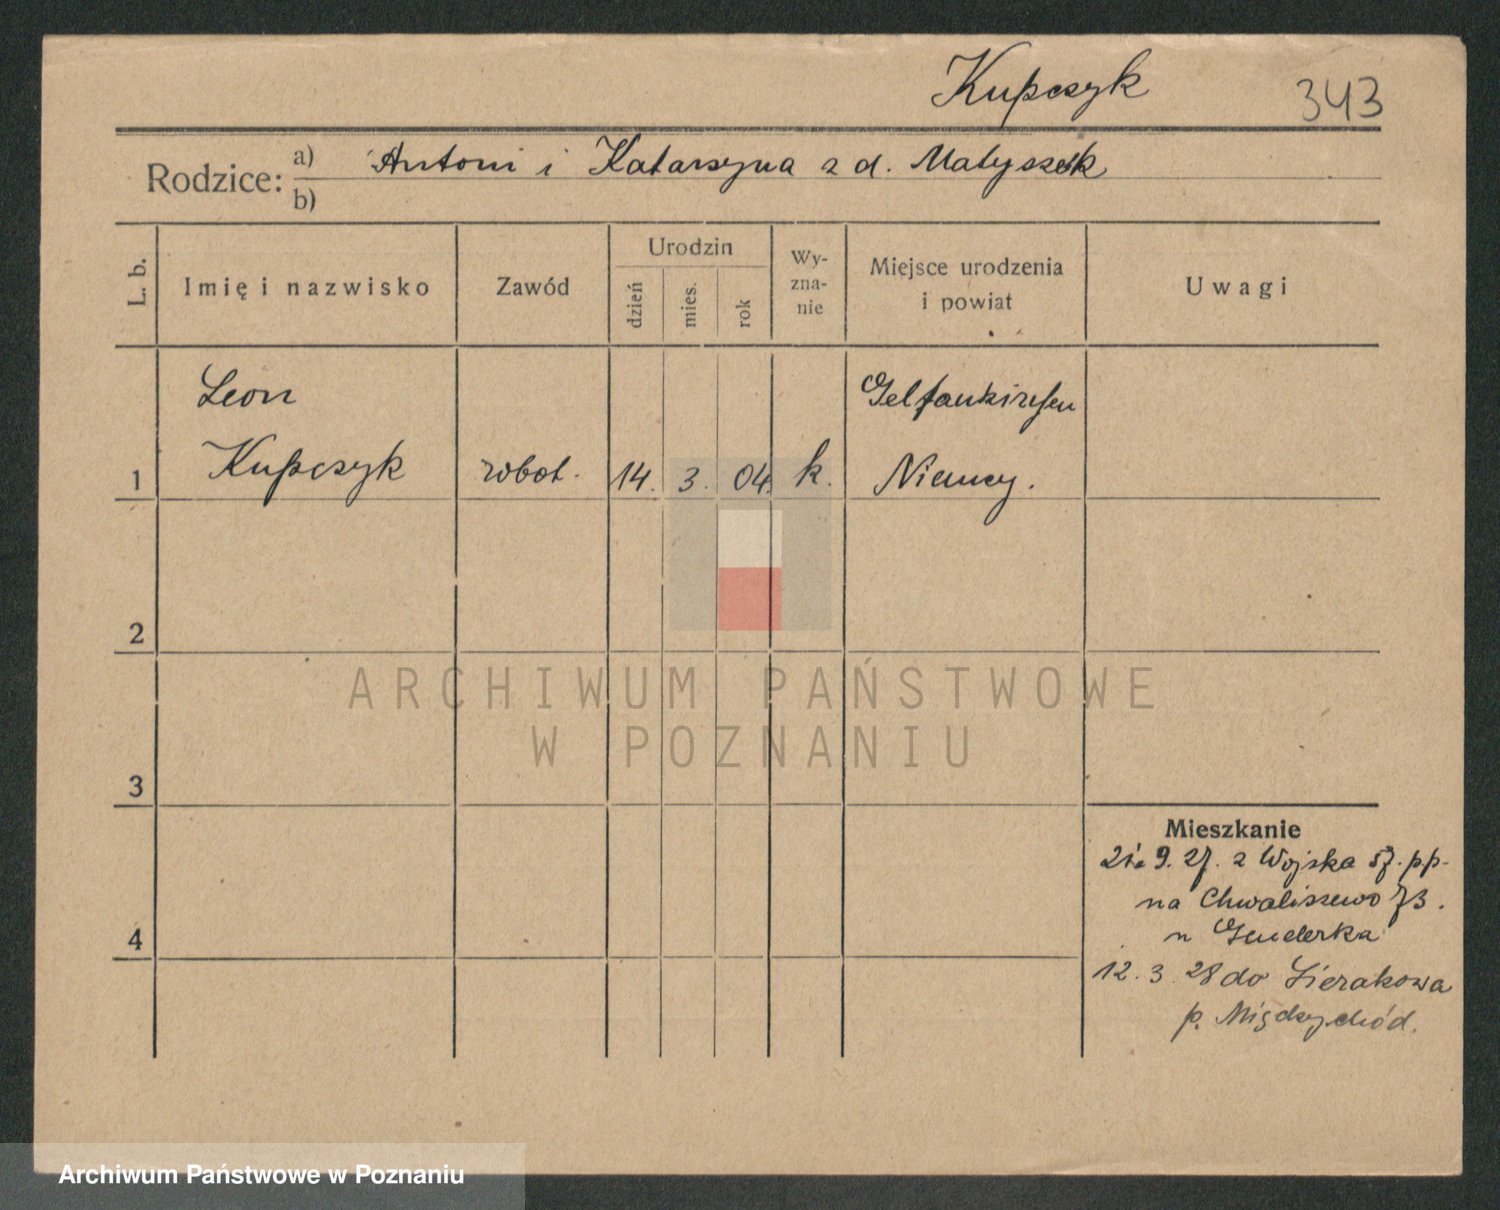 Kupczyk 343
Rodzice: a) Antoni i Katarzyna z d. Matyszak
b)
L. b. Imię i nazwisko Zawód Urodzin dzień mies. rok Wy-zna-nie Miejsce urodzenia i powiat Uwagi
Leon Gelsenkirchen
1 Kupczyk robot. 14. 3. 04. k. Niemcy.
2
3
4
Mieszkanie
21. 9. 27. z Wojska 57. pp.
na Chwaliszewo 73.
u
12. 3. 28 do Sierakowa
p. Międzychód.
ARCHIWUM PAŃSTWOWE
W POZNANIU
Archiwum Państwowe w Poznaniu